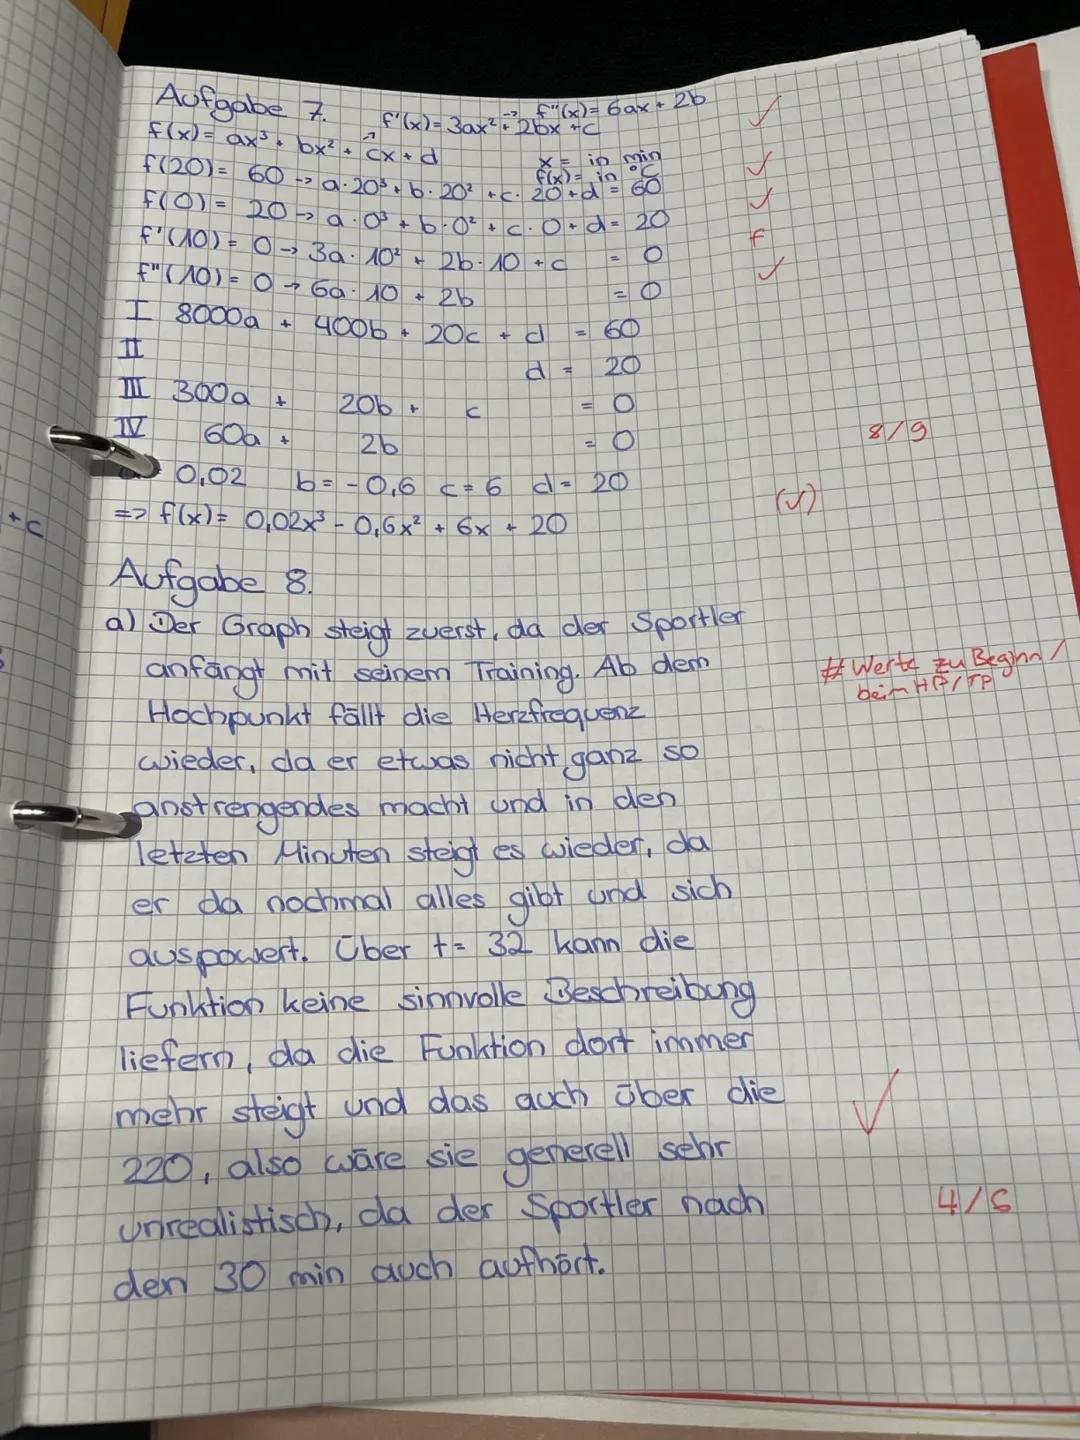 Aufgabe 7. f'(x)= 3ax² + 2bx +c → f''(x)= 6ax + 2b ✓
f(x)= ax³ + bx² + cx + d
x = in min
f(x)= in °C ✓
f(20)= 60 → a·20³ + b·20² + c·20 + d = 60 ✓
f(0)= 20 → a·0³ + b·0² + c·0 + d = 20
f'(10)= 0 → 3a·10² + 2b·10 + c = 0 f
f''(10)= 0 → 6a·10 + 2b = 0 ✓
I 8000a + 400b + 20c + d = 60
II d = 20
III 300a + 20b + c = 0
IV 60a + 2b = 0
8/9
0,02 b= -0,6 c= 6 d= 20
=> f(x)= 0,02x³ - 0,6x² + 6x + 20 (✓)
+c
Aufgabe 8.
a) Der Graph steigt zuerst, da der Sportler
anfängt mit seinem Training. Ab dem
# Werte zu Beginn /
beim HP/TP
Hochpunkt fällt die Herzfrequenz
wieder, da er etwas nicht ganz so
anstrengendes macht und in den
letzten Minuten steigt es wieder, da
er da nochmal alles gibt und sich
auspowert. Über t= 32 kann die
Funktion keine sinnvolle Beschreibung
liefern, da die Funktion dort immer
mehr steigt und das auch über die ✓
220, also wäre sie generell sehr
unrealistisch, da der Sportler nach
4/6
den 30 min auch aufhört.